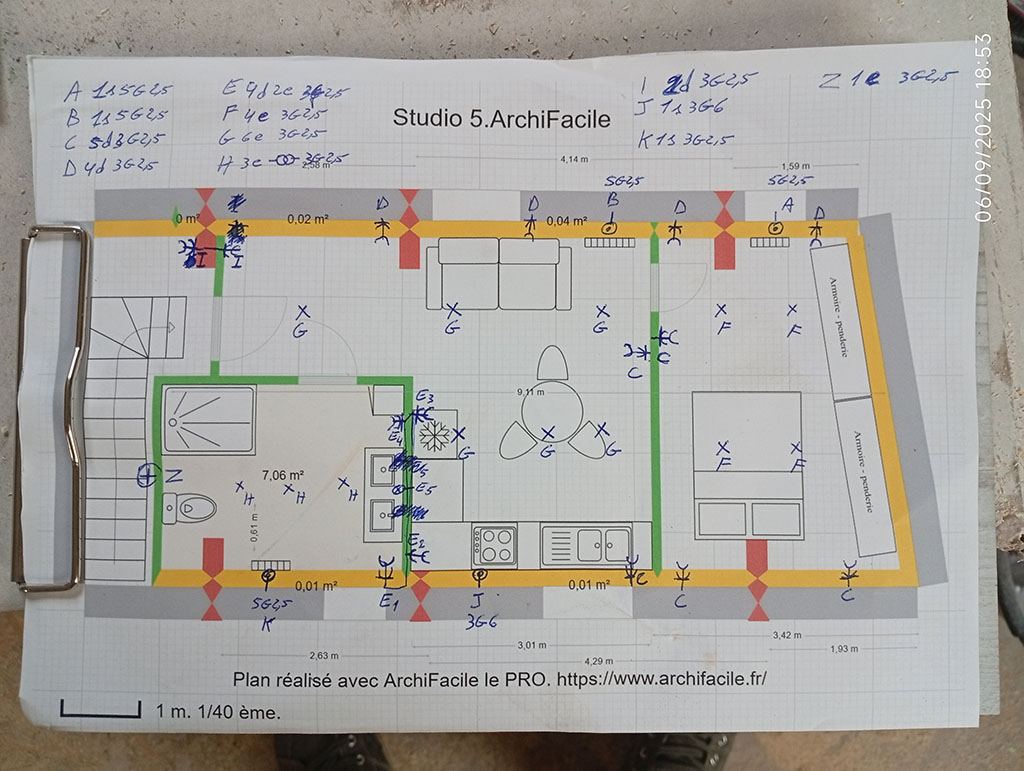 06/09/2025 18:53
A 1s 5G2,5
B 1s 5G2,5
C 5d 3G2,5
D 4d 3G2,5
E 4d 2e 3G2,5
F 4e 3G2,5
G 6e 3G2,5
H 3e 3G2,5
I 2d 3G2,5
J 1s 3G6
K 1s 3G2,5
Z 1e 3G2,5
Studio 5.ArchiFacile
2,58 m
4,14 m
1,59 m
5G2,5
5G2,5
I D D B D A D
0 m²
0,02 m²
0,04 m²
I I
G G G F F
C C
Armoire - penderie
9,11 m²
E3
E4
G G G F F
Armoire - penderie
E5
E5
Z
7,06 m²
H H H
0,61 m
E2
0,01 m²
0,01 m²
C
5G2,5
K
E1
J
3G6
C
C
3,01 m
3,42 m
2,63 m
4,29 m
1,93 m
Plan réalisé avec ArchiFacile le PRO. https://www.archifacile.fr/
1 m. 1/40 ème.